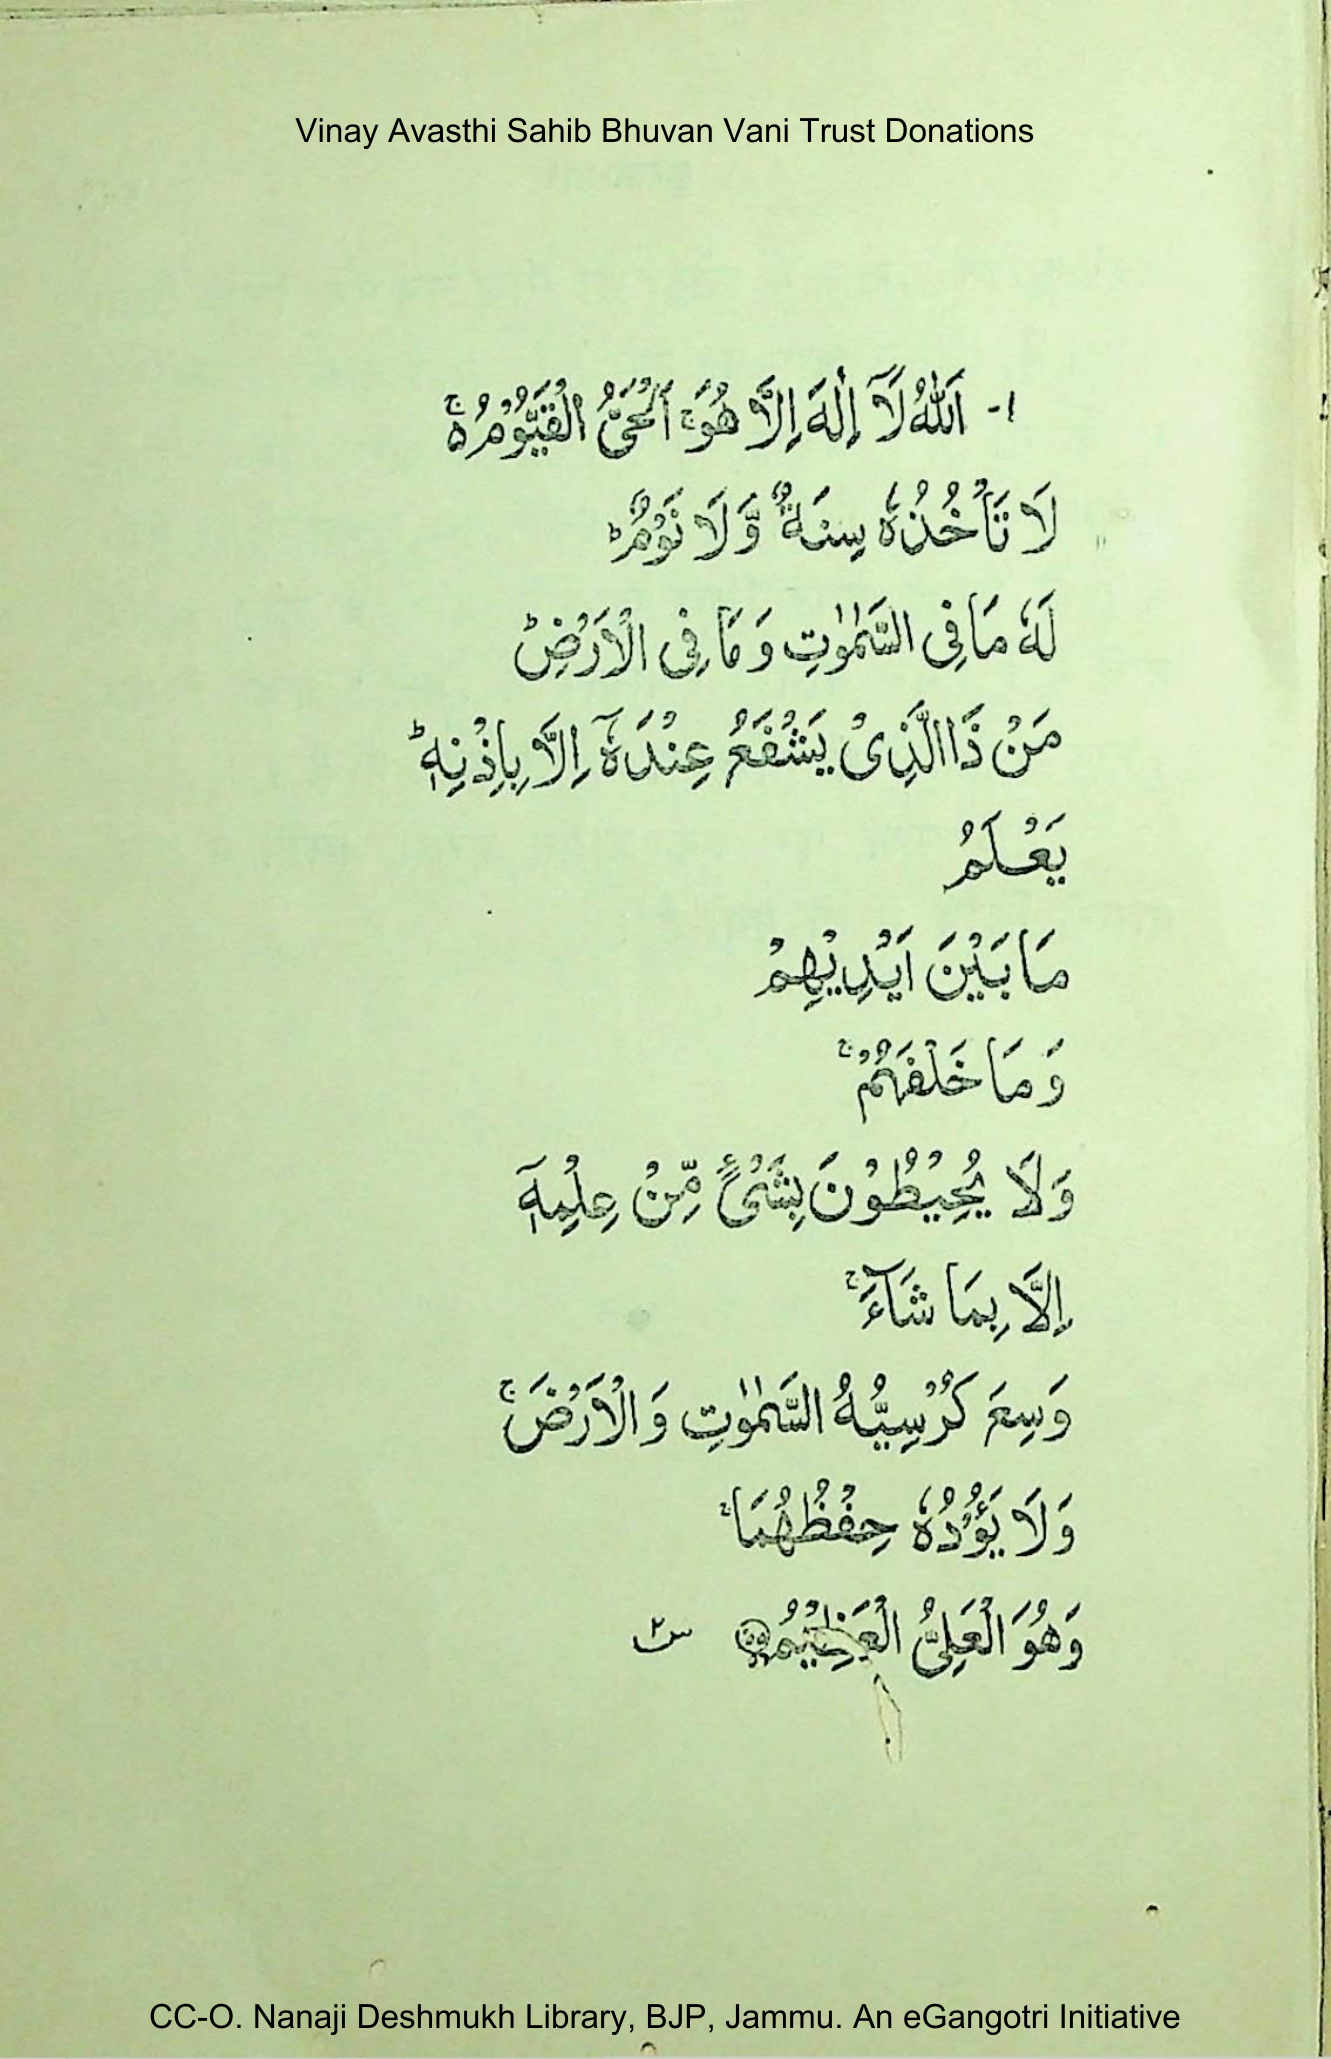 Vinay Avasthi Sahib Bhuvan Vani Trust Donations
۱- اَللّٰهُ لَآ اِلٰهَ اِلَّا هُوَ ۚ اَلْحَیُّ الْقَیُّوْمُ ۬ۚ
لَا تَاْخُذُهٗ سِنَةٌ وَّلَا نَوْمٌ ؕ
لَهٗ مَا فِی السَّمٰوٰتِ وَمَا فِی الْاَرْضِ ؕ
مَنْ ذَا الَّذِیْ یَشْفَعُ عِنْدَهٗۤ اِلَّا بِاِذْنِهٖ ؕ
یَعْلَمُ
مَا بَیْنَ اَیْدِیْهِمْ
وَمَا خَلْفَهُمْ ۚ
وَلَا یُحِیْطُوْنَ بِشَیْءٍ مِّنْ عِلْمِهٖۤ
اِلَّا بِمَا شَآءَ ۚ
وَسِعَ كُرْسِیُّهُ السَّمٰوٰتِ وَالْاَرْضَ ۚ
وَلَا یَـُٔوْدُهٗ حِفْظُهُمَا ۚ
وَهُوَ الْعَلِیُّ الْعَظِیْمُ
CC-O. Nanaji Deshmukh Library, BJP, Jammu. An eGangotri Initiative